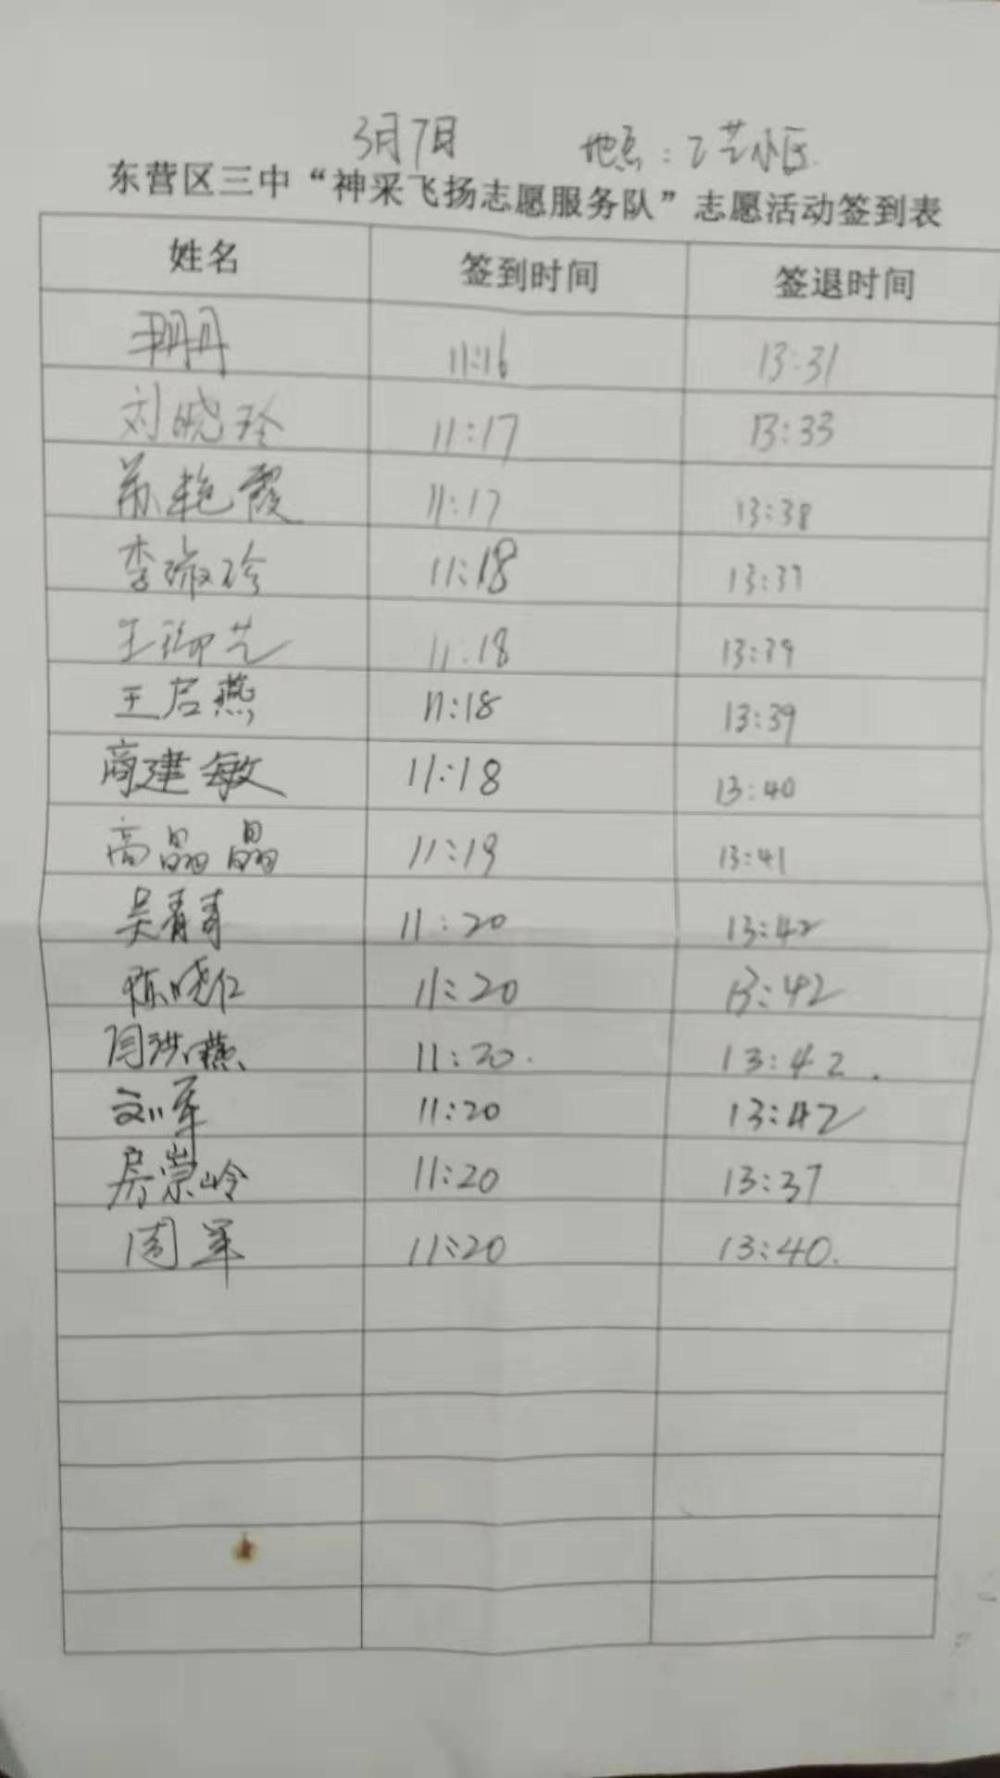 3月7日 地点：工艺小区
东营区三中“神采飞扬志愿服务队”志愿活动签到表
姓名 签到时间 签退时间
11:16 13:31
刘晓玲 11:17 13:33
苏艳霞 11:17 13:38
李淑珍 11:18 13:39
11:18 13:39
王启燕 11:18 13:39
商建敏 11:18 13:40
高晶晶 11:19 13:41
吴青青 11:20 13:42
陈晓红 11:20 13:42
闫洪燕 11:20. 13:42.
刘军 11:20 13:42
房崇岭 11:20 13:37
周军 11:20 13:40.